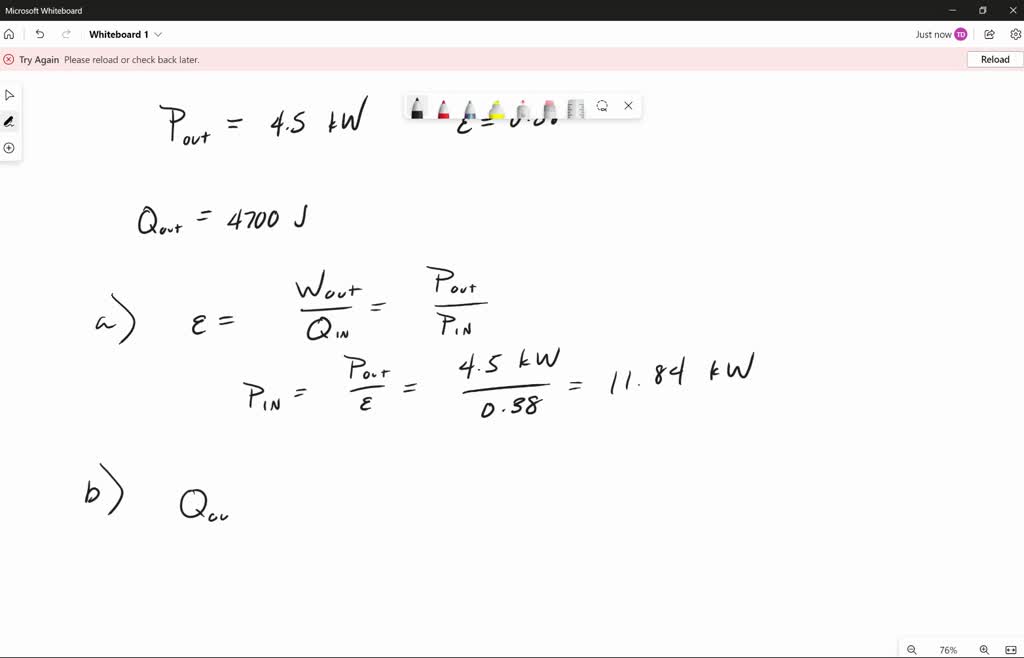 Microsoft Whiteboard
Whiteboard 1
Just now TD
Try Again Please reload or check back later.
Reload
P_out = 4.5 kW
ε =
Q_out = 4700 J
a) ε = W_out / Q_IN = P_out / P_IN
P_IN = P_out / ε = 4.5 kW / 0.38 = 11.84 kW
b) Q_ou
76%